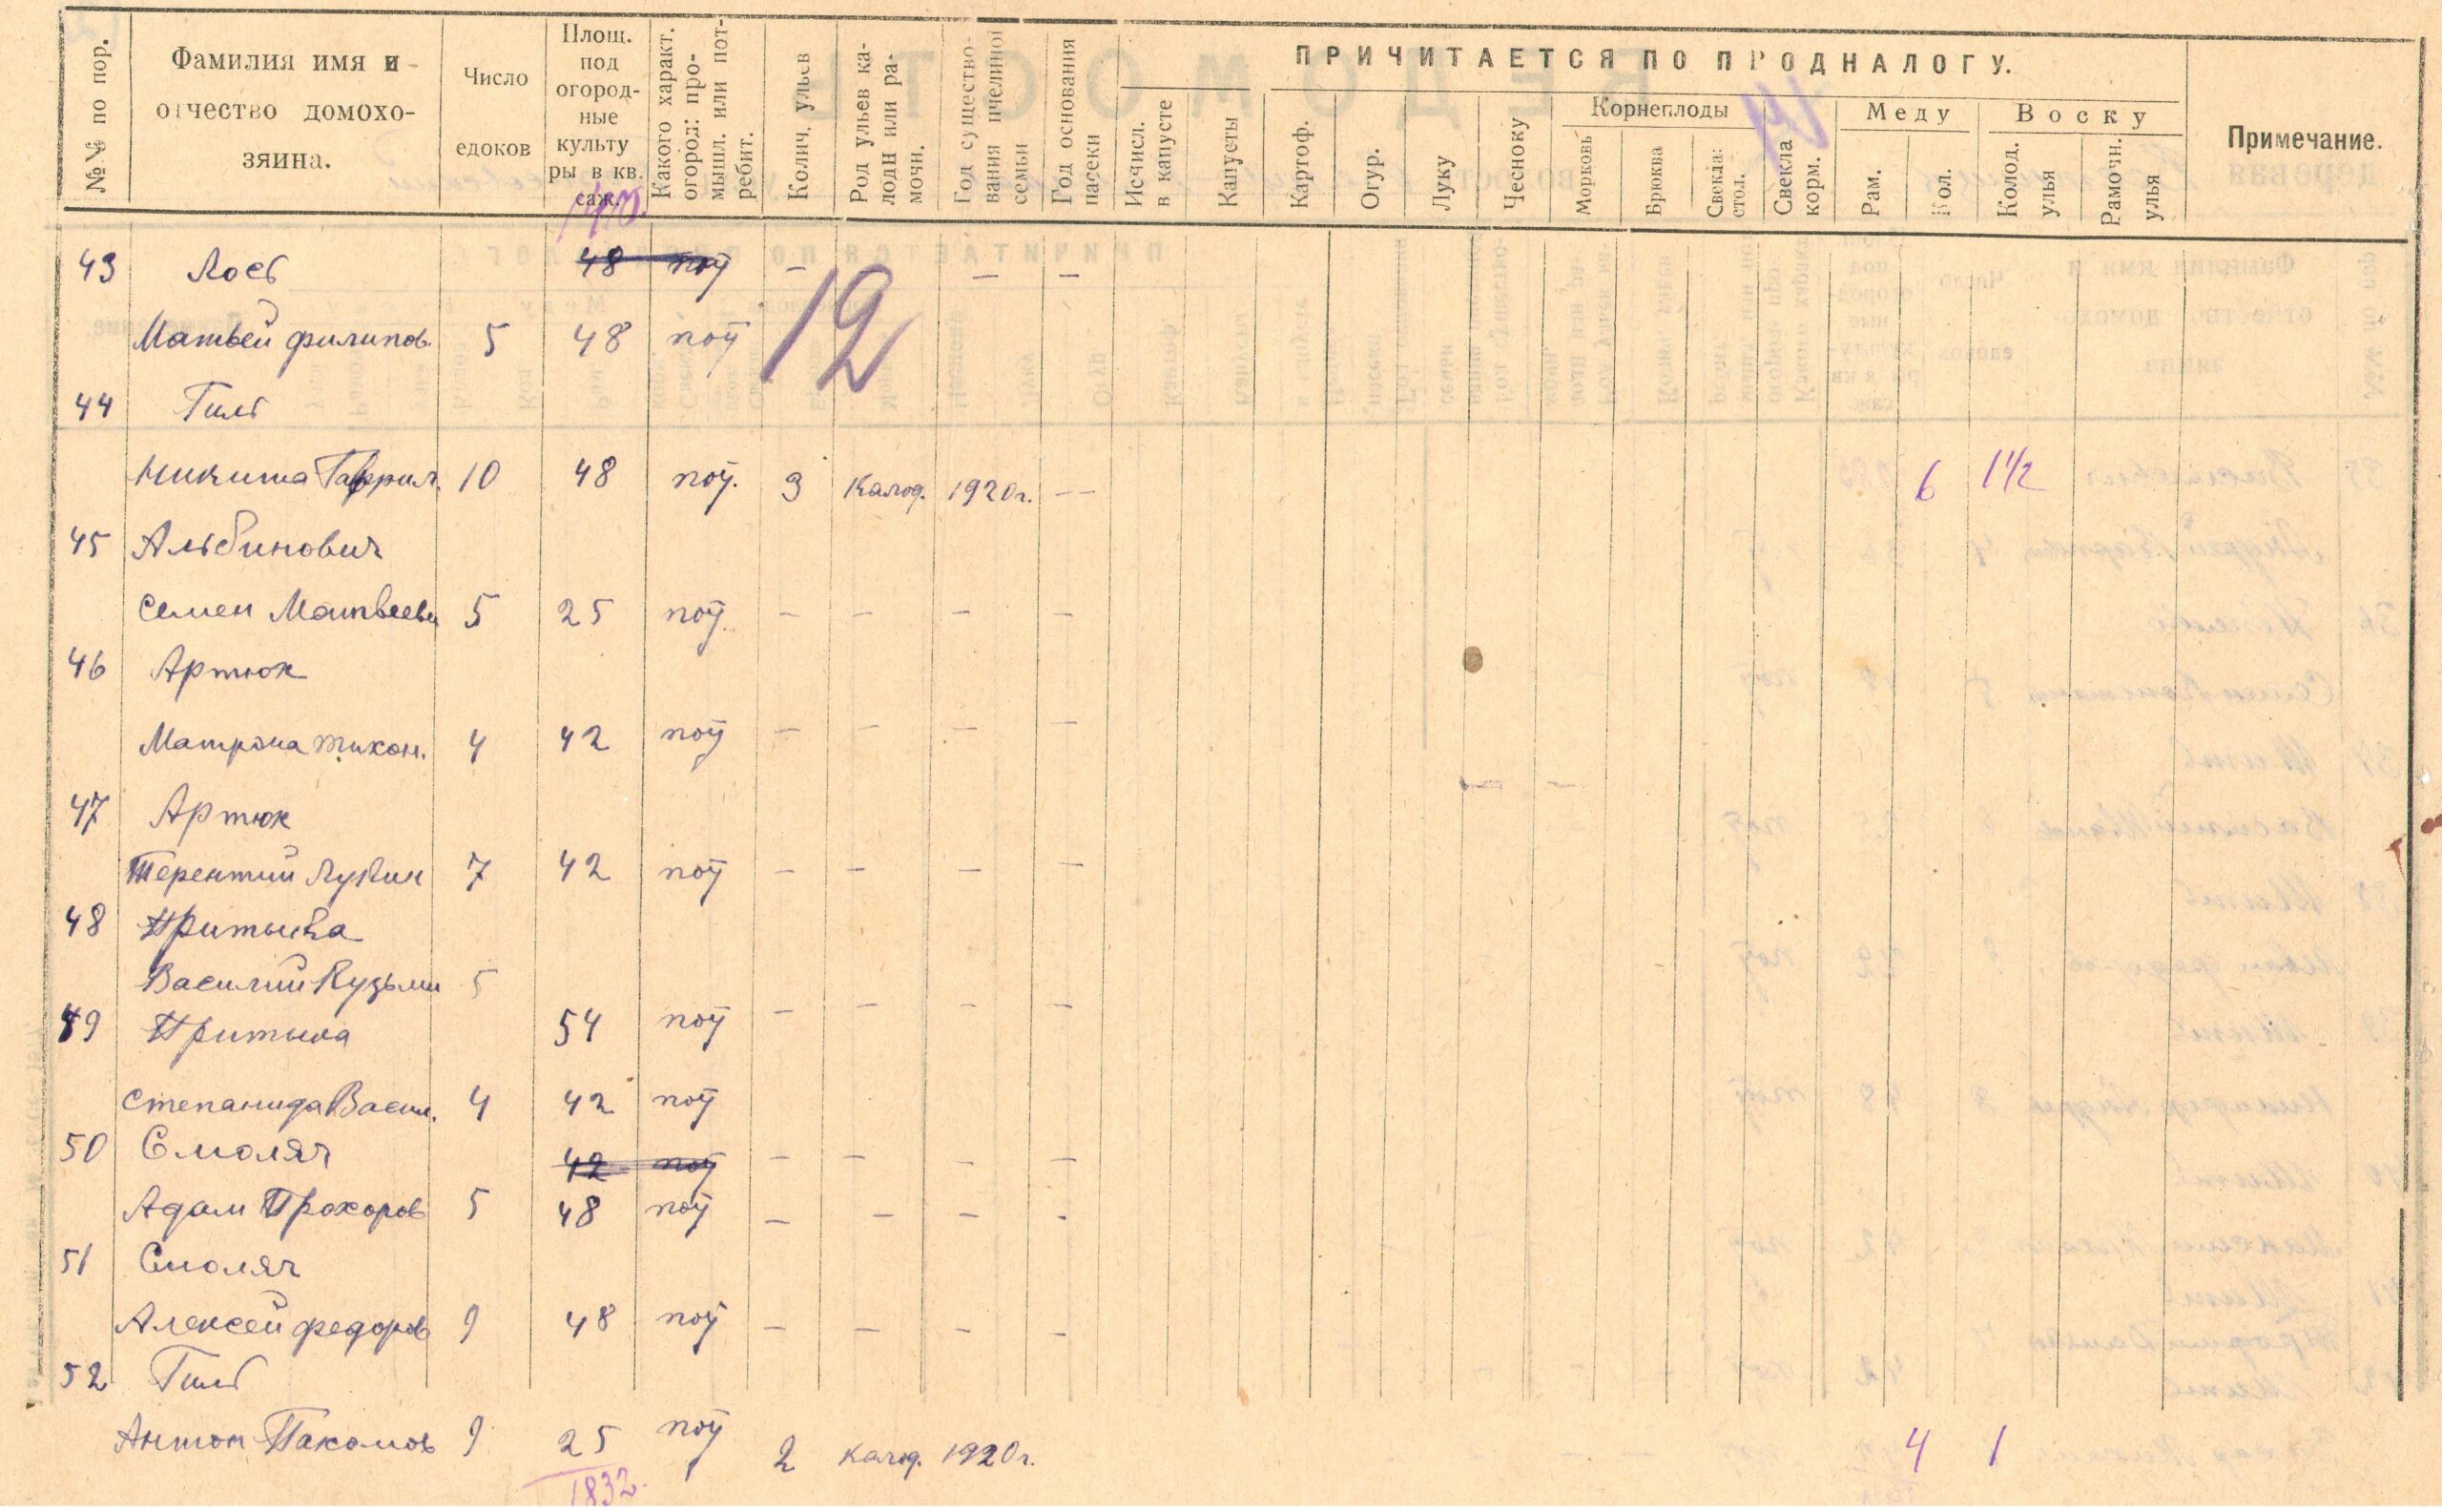 ПРИЧИТАЕТСЯ ПО ПРОДНАЛОГУ.
№№ по пор.
Фамилия имя и отчество домохозяина.
Число едоков
Площ. под огородные культуры в кв. саж.
Какого характ. огород: промышл. или потребит.
Колич. ульев
Род ульев калодн или рамочн.
Год существования пчелиной семьи
Год основания пасеки
Исчисл. в капусте
Капусты
Картоф.
Огур.
Луку
Чесноку
Корнеплоды
Морковь
Брюква
Свекла: стол.
Свекла корм.
Меду
Рам.
Кол.
Воску
Колод. улья
Рамочн. улья
Примечание.
43 Лось 48 поў — — —
Матвей Филипов. 5 48 поў
12
44 Гиль
Никита Гаврил. 10 48 поў. 3 Калод. 1920г. — 6 1½
45 Альбинович
Семен Матвееви 5 25 поў. — — — —
46 Артюк
Матрона Тихон. 4 42 поў — — — —
47 Артюк
Терентий Лукин 7 42 поў — — — —
48 Притыка
Василий Кузьми 5
49 Притыка 54 поў — — — —
Степанида Васил. 4 42 поў
50 Смоляч 42 поў — — — —
Адам Прохоров 5 48 поў — — — -
51 Смоляч
Алексей Федоров 9 48 поў — — — —
52 Гиль
Антон Пахомов 9 25 поў 2 калод. 1920г. 4 1
1832.